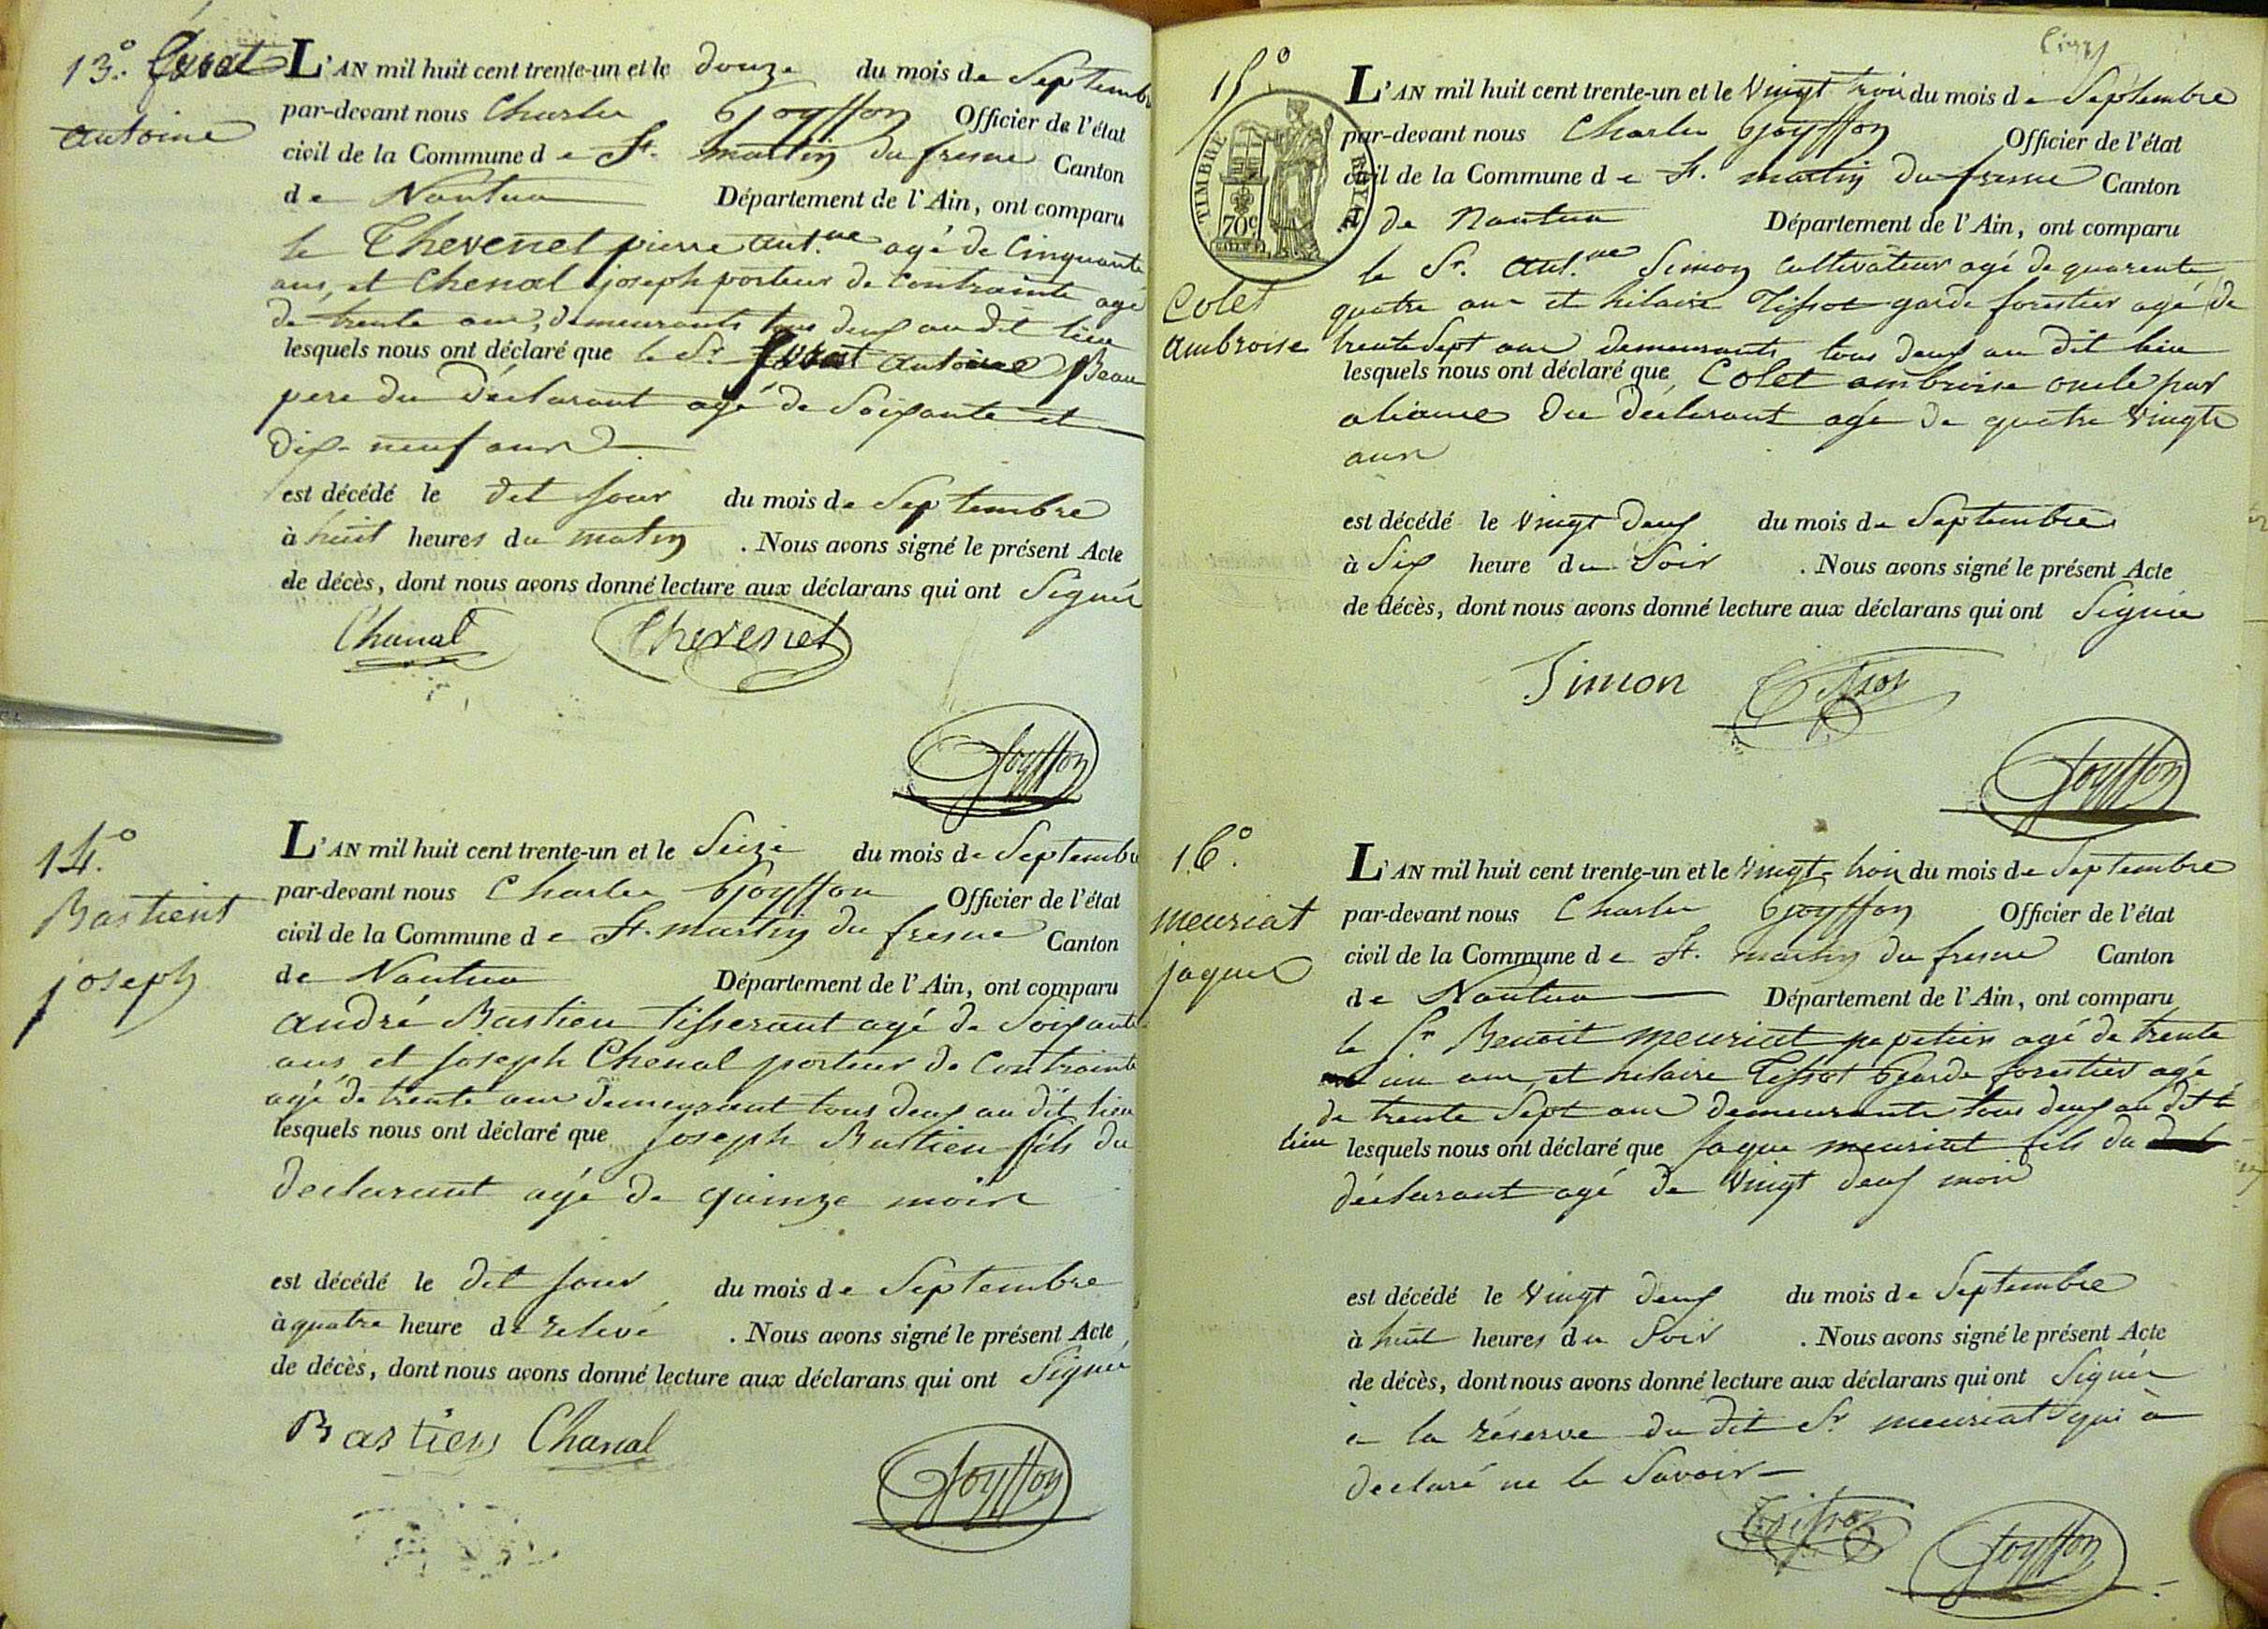 13.° Evrat
antoine
L'AN mil huit cent trente-un et le douze du mois de Septembre
par-devant nous Charles Goyffon Officier de l'état
civil de la Commune de St. martin du fresne Canton
de Nantua Département de l'Ain, ont comparu
le Thevenet pierre ant.ne agé de Cinquante
ans, et Chenal joseph porteur de Contrainte agé
de trente ans, demeurants tous deux au dit lieu
lesquels nous ont déclaré que le Sr Evrat antoine Beau
pere du déclarant agé de Soixante et
dix-neuf ans
est décédé le dit jour du mois de Septembre
à huit heures du matin . Nous avons signé le présent Acte
de décès, dont nous avons donné lecture aux déclarans qui ont Signés
Chanal Thevenet
Goyffon
14.°
Bastient
joseph
L'AN mil huit cent trente-un et le Seize du mois de Septembre
par-devant nous Charles Goyffon Officier de l'état
civil de la Commune de St. martin du fresne Canton
de Nantua Département de l'Ain, ont comparu
andré Bastien tisserant agé de Soixante
ans et joseph Chenal porteur de Contrainte
agé de trente ans demeurant tous deux au dit lieu
lesquels nous ont déclaré que joseph Bastien fils du
declarant agé de quinze mois
est décédé le dit jour du mois de Septembre
à quatre heure de relevé . Nous avons signé le présent Acte
de décès, dont nous avons donné lecture aux déclarans qui ont Signés
Bastien Chanal
Goyffon
15°
TIMBRE ROYAL
70c
Colet
ambroise
L'AN mil huit cent trente-un et le vingt trois du mois de Septembre
par-devant nous Charles Goyffon Officier de l'état
civil de la Commune de St. martin du fresne Canton
de Nantua Département de l'Ain, ont comparu
le Sr. ant.ne Simon Cultivateur agé de quarente
quatre ans et hilaire Tissot garde forestier agé de
trente Sept ans demeurants tous deux au dit lieu
lesquels nous ont déclaré que Colet ambroise oncle par
aliance du déclarant agé de quatre vingts
ans
est décédé le vingt deux du mois de Septembre
à Six heure du Soir . Nous avons signé le présent Acte
de décès, dont nous avons donné lecture aux déclarans qui ont Signés
Simon Tissot
Goyffon
16.°
meuriat
jaques
L'AN mil huit cent trente-un et le vingt-trois du mois de Septembre
par-devant nous Charles Goyffon Officier de l'état
civil de la Commune de St. martin du fresne Canton
de Nantua Département de l'Ain, ont comparu
le Sr Benoit meuriat papetier agé de trente
un ans, et hilaire Tissot Garde forestier agé
de trente Sept ans demeurants tous deux au dit
lieu lesquels nous ont déclaré que jaque meuriat fils du
déclarant agé de vingt deux mois
est décédé le vingt deux du mois de Septembre
à huit heures du Soir . Nous avons signé le présent Acte
de décès, dont nous avons donné lecture aux déclarans qui ont Signés
à la réserve du dit Sr meuriat qui à
declaré ne le Savoir
Goyffon